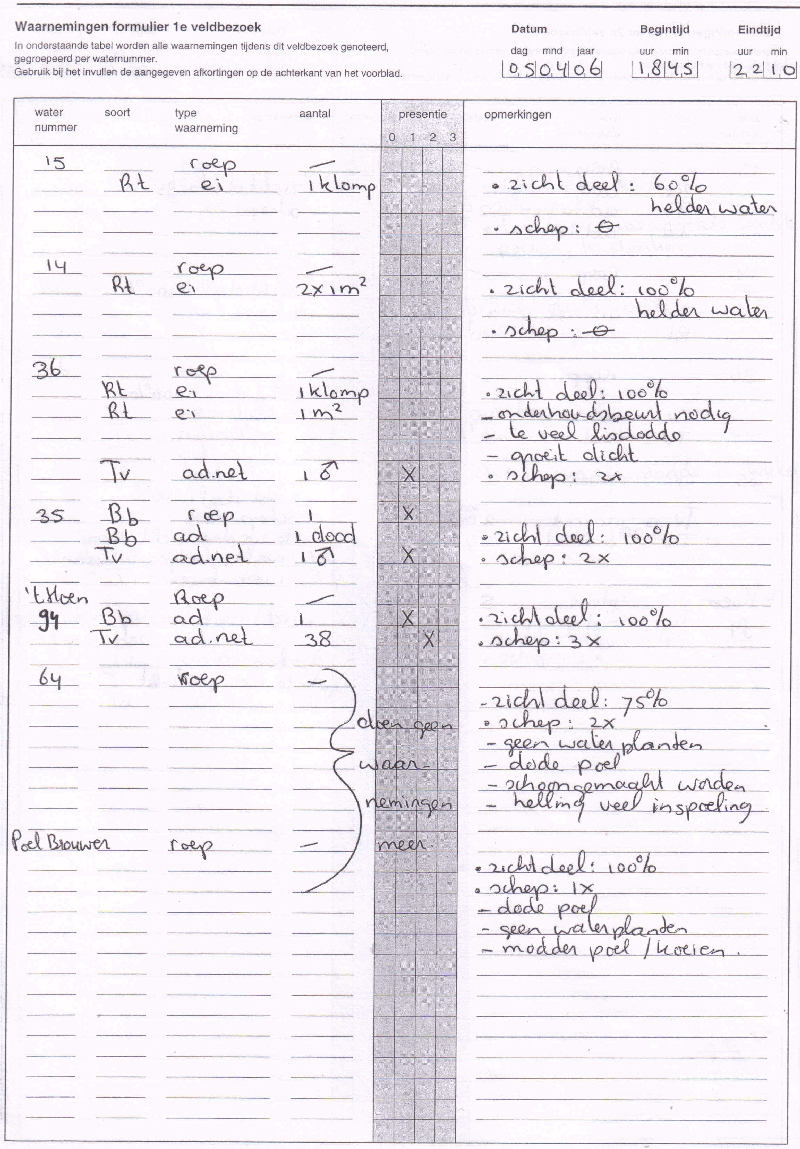 Waarnemingen formulier 1e veldbezoek
In onderstaande tabel worden alle waarnemingen tijdens dit veldbezoek genoteerd,
gegroepeerd per waternummer.
Gebruik bij het invullen de aangegeven afkortingen op de achterkant van het voorblad.
Datum Begintijd Eindtijd
dag mnd jaar uur min uur min
050406 1845 2210
water nummer soort type waarneming aantal presentie opmerkingen
0 1 2 3
15 roep —
Rt ei 1 klomp • zicht deel: 60%
helder water
• schep: 0
14 roep —
Rt ei 2x1m² • zicht deel: 100%
helder water
• schep: 0
36 roep —
Rt ei 1 klomp • zicht deel: 100%
Rt ei 1m² - onderhoudsbeurt nodig
- te veel lisdodde
- groeit dicht
Tv ad.net 1♂ X • schep: 2x
35 Bb roep 1 X
Bb ad 1 dood • zicht deel: 100%
Tv ad.net 1♂ X • schep: 2x
't Hoen Roep —
94 Bb ad 1 X • zicht deel: 100%
Tv ad.net 38 X • schep: 3x
64 roep —
- zicht deel: 75%
doen geen • schep: 2x
- geen waterplanten
waar- - dode poel
- schoongemaakt worden
nemingen - helling veel inspoeling
Poel Brouwer roep — meer
• zicht deel: 100%
• schep: 1x
- dode poel
- geen waterplanten
- modder poel / koeien.